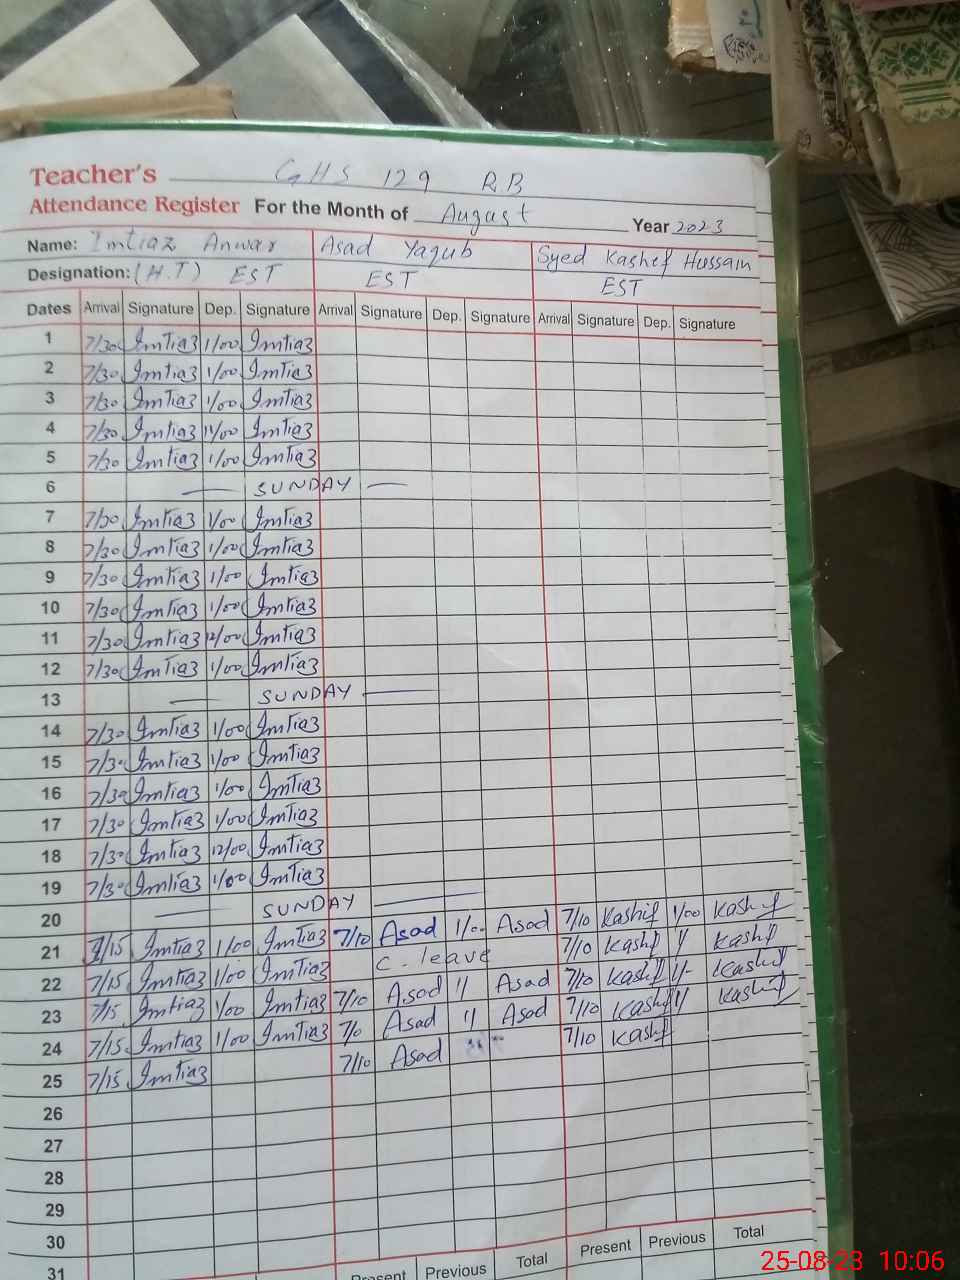 Teacher's GHS 129 RB
Attendance Register For the Month of August Year 2023
Name: Imtiaz Anwar Asad Yaqub Syed Kashef Hussain
Designation: (H.T) EST EST EST
Dates Arrival Signature Dep. Signature Arrival Signature Dep. Signature Arrival Signature Dep. Signature
1 7/30 Imtiaz 1/00 Imtiaz
2 7/30 Imtiaz 1/00 Imtiaz
3 7/30 Imtiaz 1/00 Imtiaz
4 7/30 Imtiaz 11/00 Imtiaz
5 7/30 Imtiaz 1/00 Imtiaz
6 — SUNDAY —
7 7/30 Imtiaz 1/00 Imtiaz
8 7/30 Imtiaz 1/00 Imtiaz
9 7/30 Imtiaz 1/00 Imtiaz
10 7/30 Imtiaz 1/00 Imtiaz
11 7/30 Imtiaz 12/00 Imtiaz
12 7/30 Imtiaz 1/00 Imtiaz
13 — SUNDAY —
14 7/30 Imtiaz 1/00 Imtiaz
15 7/30 Imtiaz 1/00 Imtiaz
16 7/30 Imtiaz 1/00 Imtiaz
17 7/30 Imtiaz 1/00 Imtiaz
18 7/30 Imtiaz 12/00 Imtiaz
19 7/30 Imtiaz 1/00 Imtiaz
20 — SUNDAY —
21 7/15 Imtiaz 1/00 Imtiaz 7/10 Asad 1/00 Asad 7/10 Kashif 1/00 Kashif
22 7/15 Imtiaz 1/00 Imtiaz C. leave 7/10 Kashif 11 Kashif
23 7/15 Imtiaz 1/00 Imtiaz 7/10 Asad 11 Asad 7/10 Kashif 1/- Kashif
24 7/15 Imtiaz 1/00 Imtiaz 7/10 Asad 11 Asad 7/10 Kashif 11 Kashif
25 7/15 Imtiaz 7/10 Asad 7/10 Kashif
26
27
28
29
30
31 Present Previous Total Present Previous Total
25-08-23 10:06